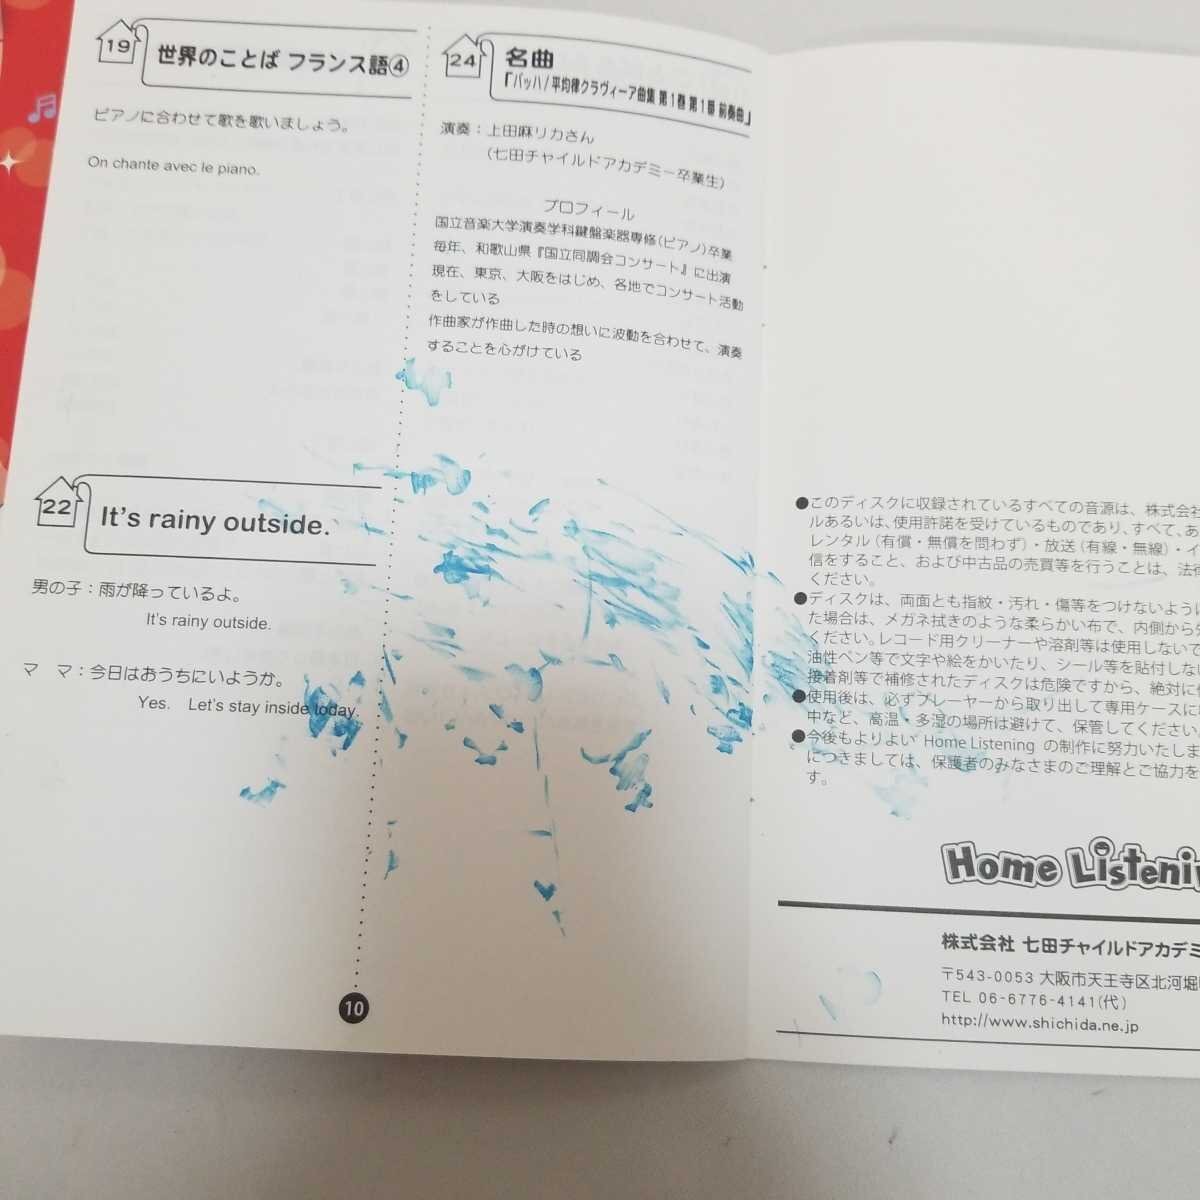 19
世界のことば フランス語④
ピアノに合わせて歌を歌いましょう。
On chante avec le piano.
22
It's rainy outside.
男の子：雨が降っているよ。
It's rainy outside.
マ　マ：今日はおうちにいようか。
Yes.　Let's stay inside today.
24
名曲
「バッハ/平均律クラヴィーア曲集 第1巻 第1番 前奏曲」
演奏：上田麻リカさん
（七田チャイルドアカデミー卒業生）
プロフィール
国立音楽大学演奏学科鍵盤楽器専修（ピアノ）卒業
毎年、和歌山県『国立同調会コンサート』に出演
現在、東京、大阪をはじめ、各地でコンサート活動
をしている
作曲家が作曲した時の想いに波動を合わせて、演奏
することを心がけている
10
●このディスクに収録されているすべての音源は、株式会社
ルあるいは、使用許諾を受けているものであり、すべて、あ
レンタル（有償・無償を問わず）・放送（有線・無線）・イ
信をすること、および中古品の売買等を行うことは、法律
ください。
●ディスクは、両面とも指紋・汚れ・傷等をつけないように
た場合は、メガネ拭きのような柔らかい布で、内側から
ください。レコード用クリーナーや溶剤等は使用しないで
油性ペン等で文字や絵をかいたり、シール等を貼付しない
接着剤等で補修されたディスクは危険ですから、絶対に
●使用後は、必ずプレーヤーから取り出して専用ケースに
中など、高温・多湿の場所は避けて、保管してください。
●今後もよりよい Home Listening の制作に努力いたしま
につきましては、保護者のみなさまのご理解とご協力を
す。
Home Listenin
株式会社 七田チャイルドアカデミ
〒543-0053 大阪市天王寺区北河堀
TEL 06-6776-4141(代)
http://www.shichida.ne.jp